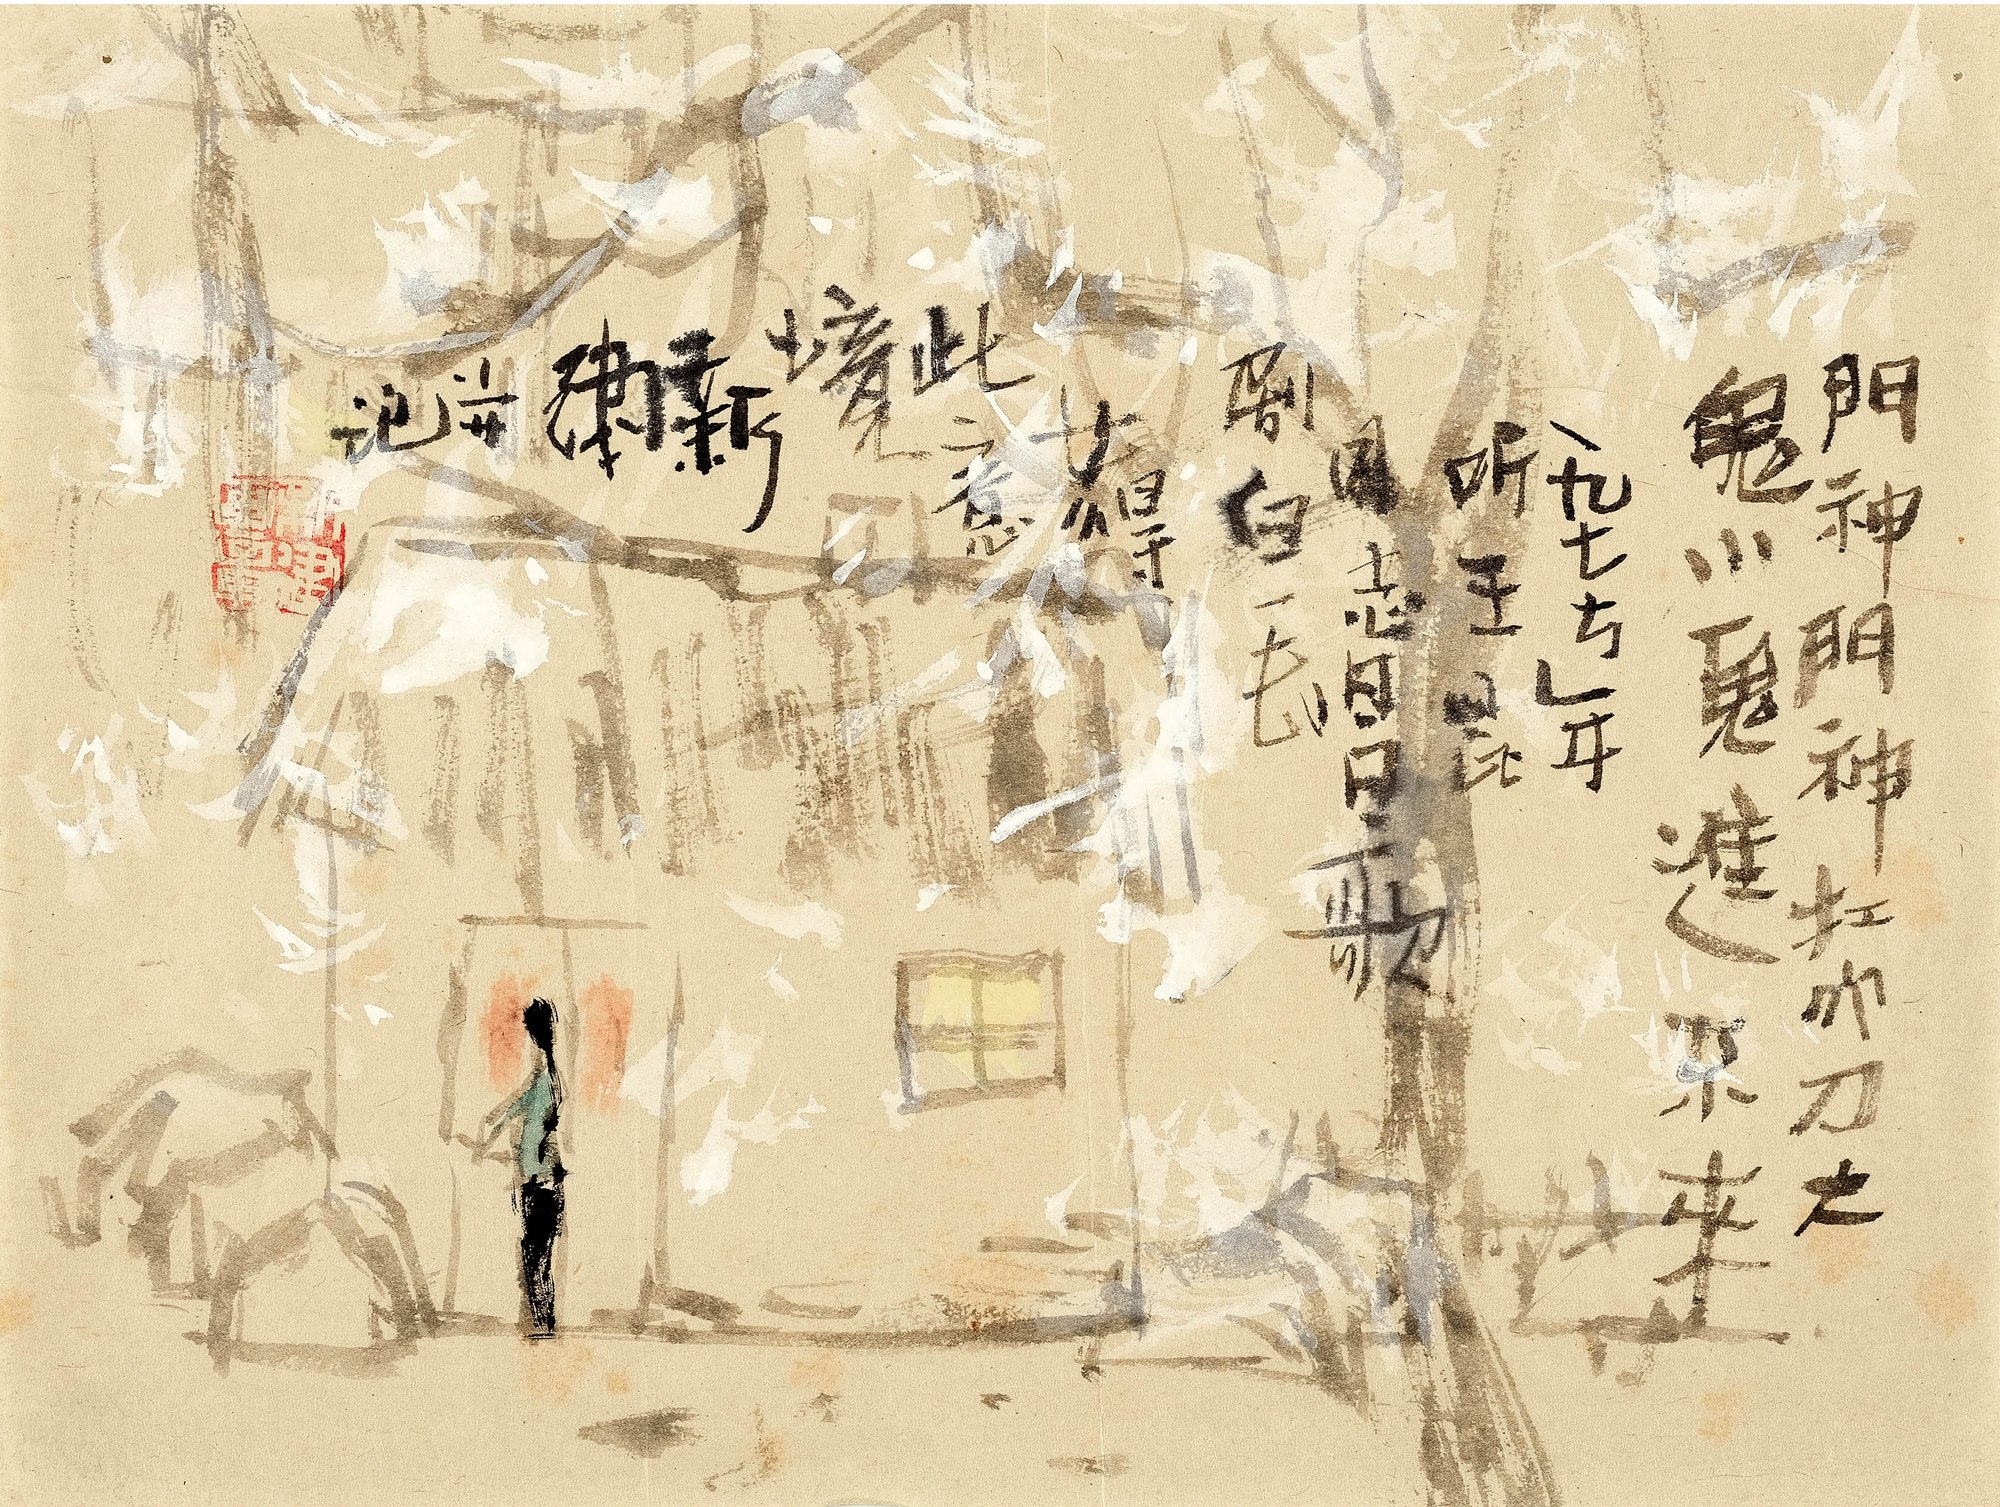 門神門神扛刀大
鬼小鬼進不來
一九七七年
听王昆
同志唱歌
劇白毛
女得
此意
境
新建
并记